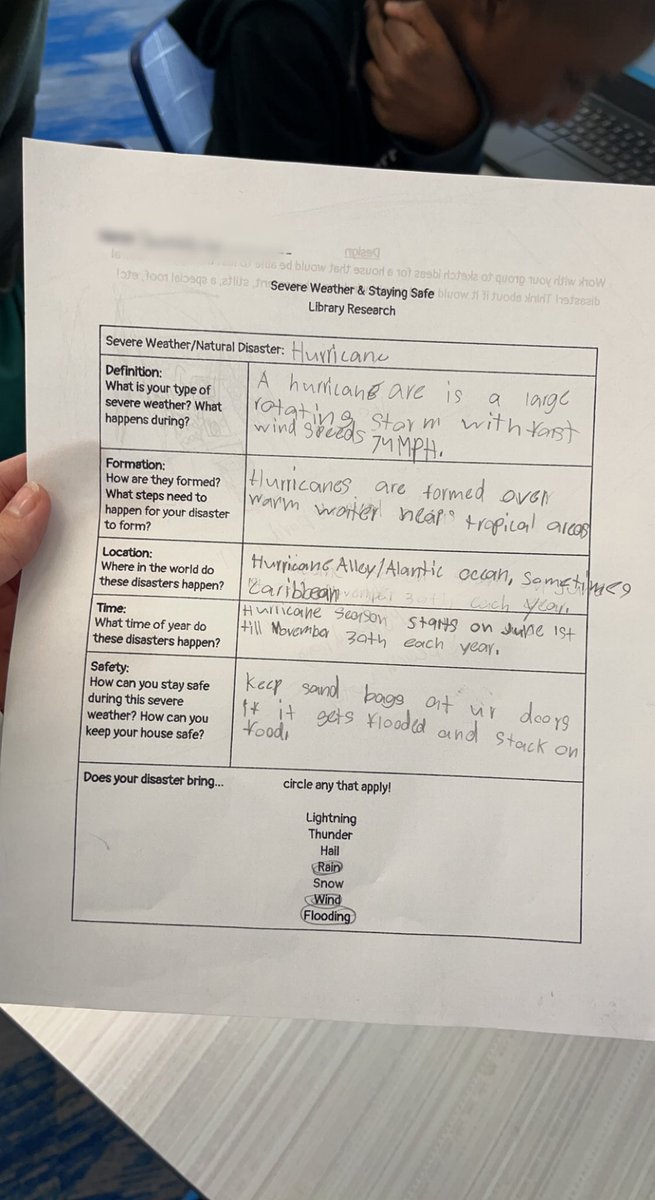 Design
Work with your group to sketch ideas for a house that would be able to
disaster! Think about if it would
, stilts, a special roof, etc!
Severe Weather & Staying Safe
Library Research
Severe Weather/Natural Disaster: Hurricane
Definition:
What is your type of
severe weather? What
happens during?
A hurricane are is a large
rotating storm with fast
wind speeds 74MPH.
Formation:
How are they formed?
What steps need to
happen for your disaster
to form?
Hurricanes are formed over
warm woiter near tropical areas
Location:
Where in the world do
these disasters happen?
Hurricane Alley/Alantic ocean, Sometimes
Caribbean
each year.
Time:
What time of year do
these disasters happen?
Hurricane season starts on June 1st
till November 30th each year.
Safety:
How can you stay safe
during this severe
weather? How can you
keep your house safe?
Keep sand bags at ur doors
If it gets flooded and stack on
food.
Does your disaster bring...
circle any that apply!
Lightning
Thunder
Hail
Rain
Snow
Wind
Flooding